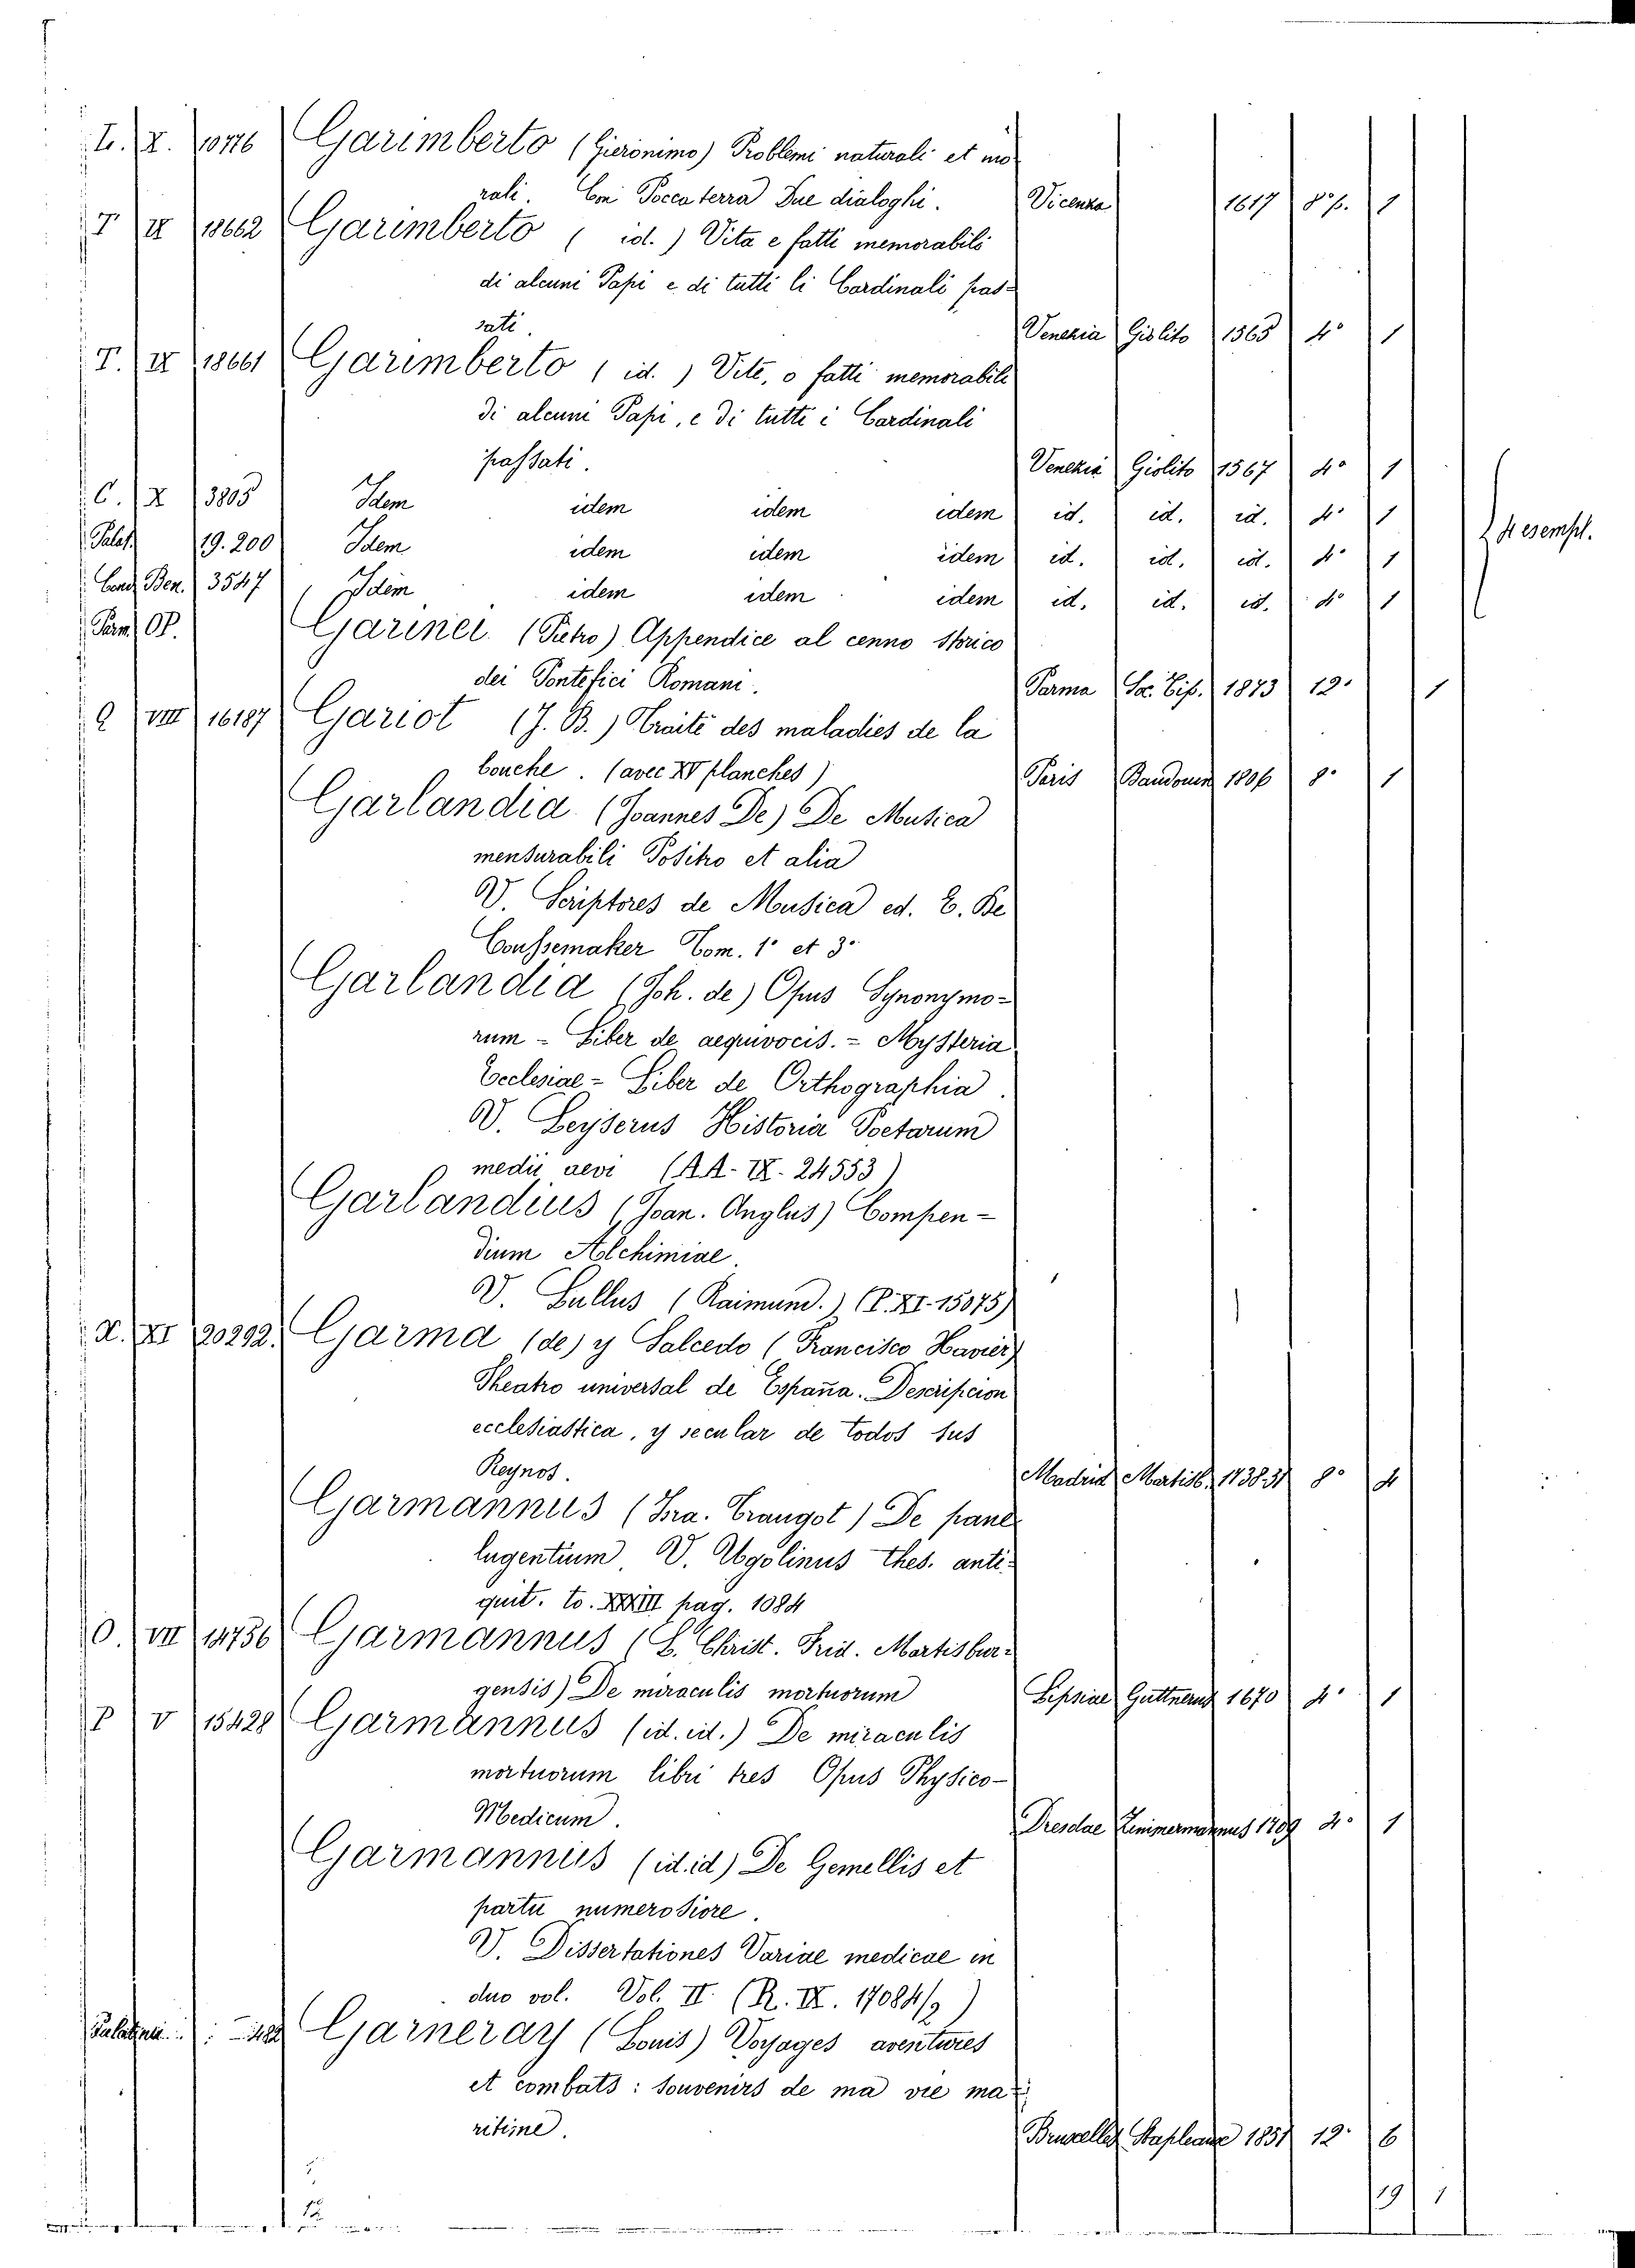 L. X. 10776 Garimberto (Gieronimo) Problemi naturali et mo-
rali. Con Poccaterra Due dialoghi. Vicenza 1617 8° p. 1
T IX 18662 Garimberto ( id. ) Vita e fatti memorabili
di alcuni Papi e di tutti li Cardinali pas-
sati. Venezia Giolito 1565 4° 1
T. IX 18661 Garimberto ( id. ) Vite, o fatti memorabili
di alcuni Papi, e di tutti i Cardinali
passati. Venezia Giolito 1567 4° 1
C. X 3805 Idem idem idem idem id. id. id. 4° 1
Palat. 19.200 Idem idem idem idem id. id. id. 4° 1 4 esempl.
Cond. Ben. 3547 Idem idem idem idem id. id. id. 4° 1
Parm. OP. Garinei (Pietro) Appendice al cenno storico
dei Pontefici Romani. Parma Soc. Tip. 1873 12° 1
Q VIII 16187 Gariot (J. B.) Traité des maladies de la
bouche. (avec XV planches) Paris 1806 8° 1
Garlandia (Joannes De) De Musica
mensurabili Positio et alia
V. Scriptores de Musica ed. E. De
Coussemaker Tom. 1° et 3°
Garlandia (Joh. de) Opus Synonymo-
rum - Liber de aequivocis. - Mysteria
Ecclesiae - Liber de Orthographia.
V. Leyserus Historia Poetarum
medii aevi (AA. IX. 24553)
Garlandius (Joan. Anglus) Compen-
dium Alchimiae.
V. Lullus (Raimund.) (P. XI. 15075)
X. XI 20292. Garma (de) y Salcedo (Francisco Xavier)
Theatro universal de España. Descripcion
ecclesiastica, y secular de todos sus
Reynos. Madrid 8° 4
Garmannus (Fra. Traugot) De pane
lugentium V. Ugolinus thes. anti-
quit. to. XXXIII pag. 1084
O. VII 14736 Garmannus (L. Christ. Frid. Martisbur-
gensis) De miraculis mortuorum Lipsiae 1670 4° 1
P V 15428 Garmannus (id. id.) De miraculis
mortuorum libri tres Opus Physico-
Medicum. Dresdae 1709 4° 1
Garmannus (id. id) De Gemellis et
partu numerosiore.
V. Dissertationes Variae medicae in
duo vol. Vol. II (R. IX. 17084/2)
Garneray (Louis) Voyages aventures
et combats: souvenirs de ma vie ma-
ritime. Bruxelles 1851 12° 6
19 1